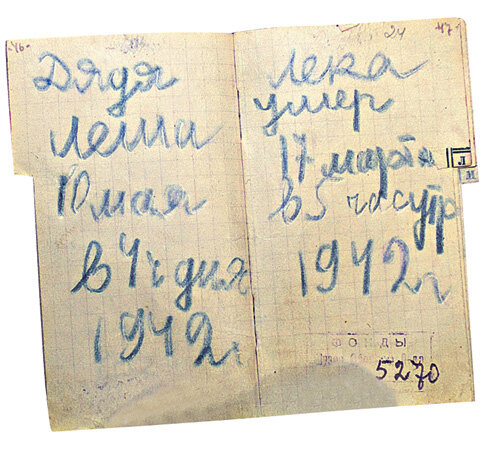 -46-
Дядя
Леша
10 мая
в 4ч дня
1942г
24
47
Лека
умер
17 марта
в 5 часутр
1942г
Л
М
ФОНДЫ
5270